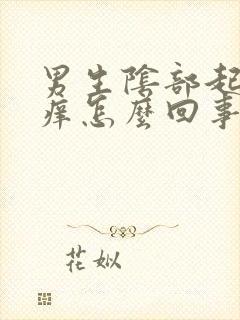 男生陰部起
痒怎麼回事
花姒